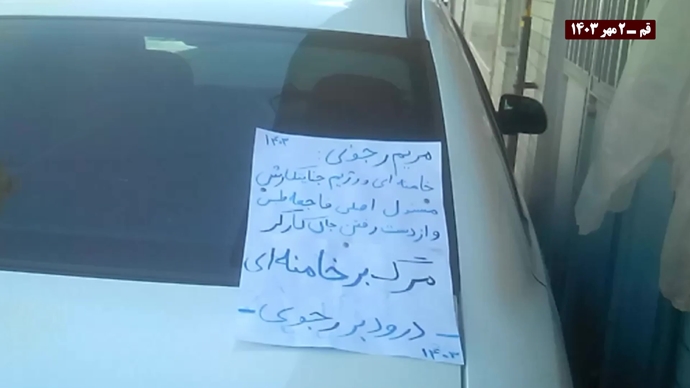 قم ـ ۲ مهر ۱۴۰۳
۱۴۰۳
مریم رجوی:
خامنه ای و رژیم جنایتکارش
مسئول اصلی فاجعه طبس
و از دست رفتن جان کارگر
مرگ بر خامنه ای
- درود بر رجوی -
۱۴۰۳